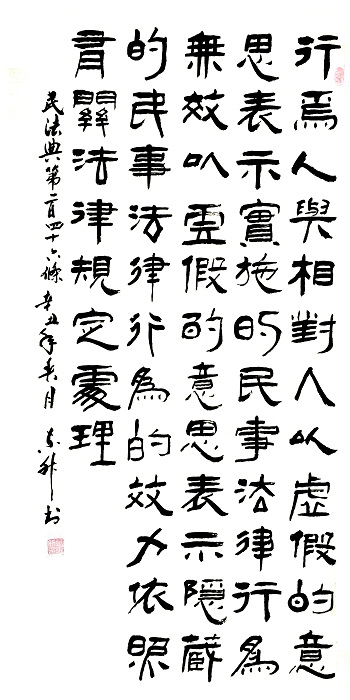 行爲人與相對人以虛假的意
思表示實施的民事法律行為
無效以虛假的意思表示隱藏
的民事法律行為的效力依照
有關法律規定處理
民法典第一百四十六條 辛丑年春月